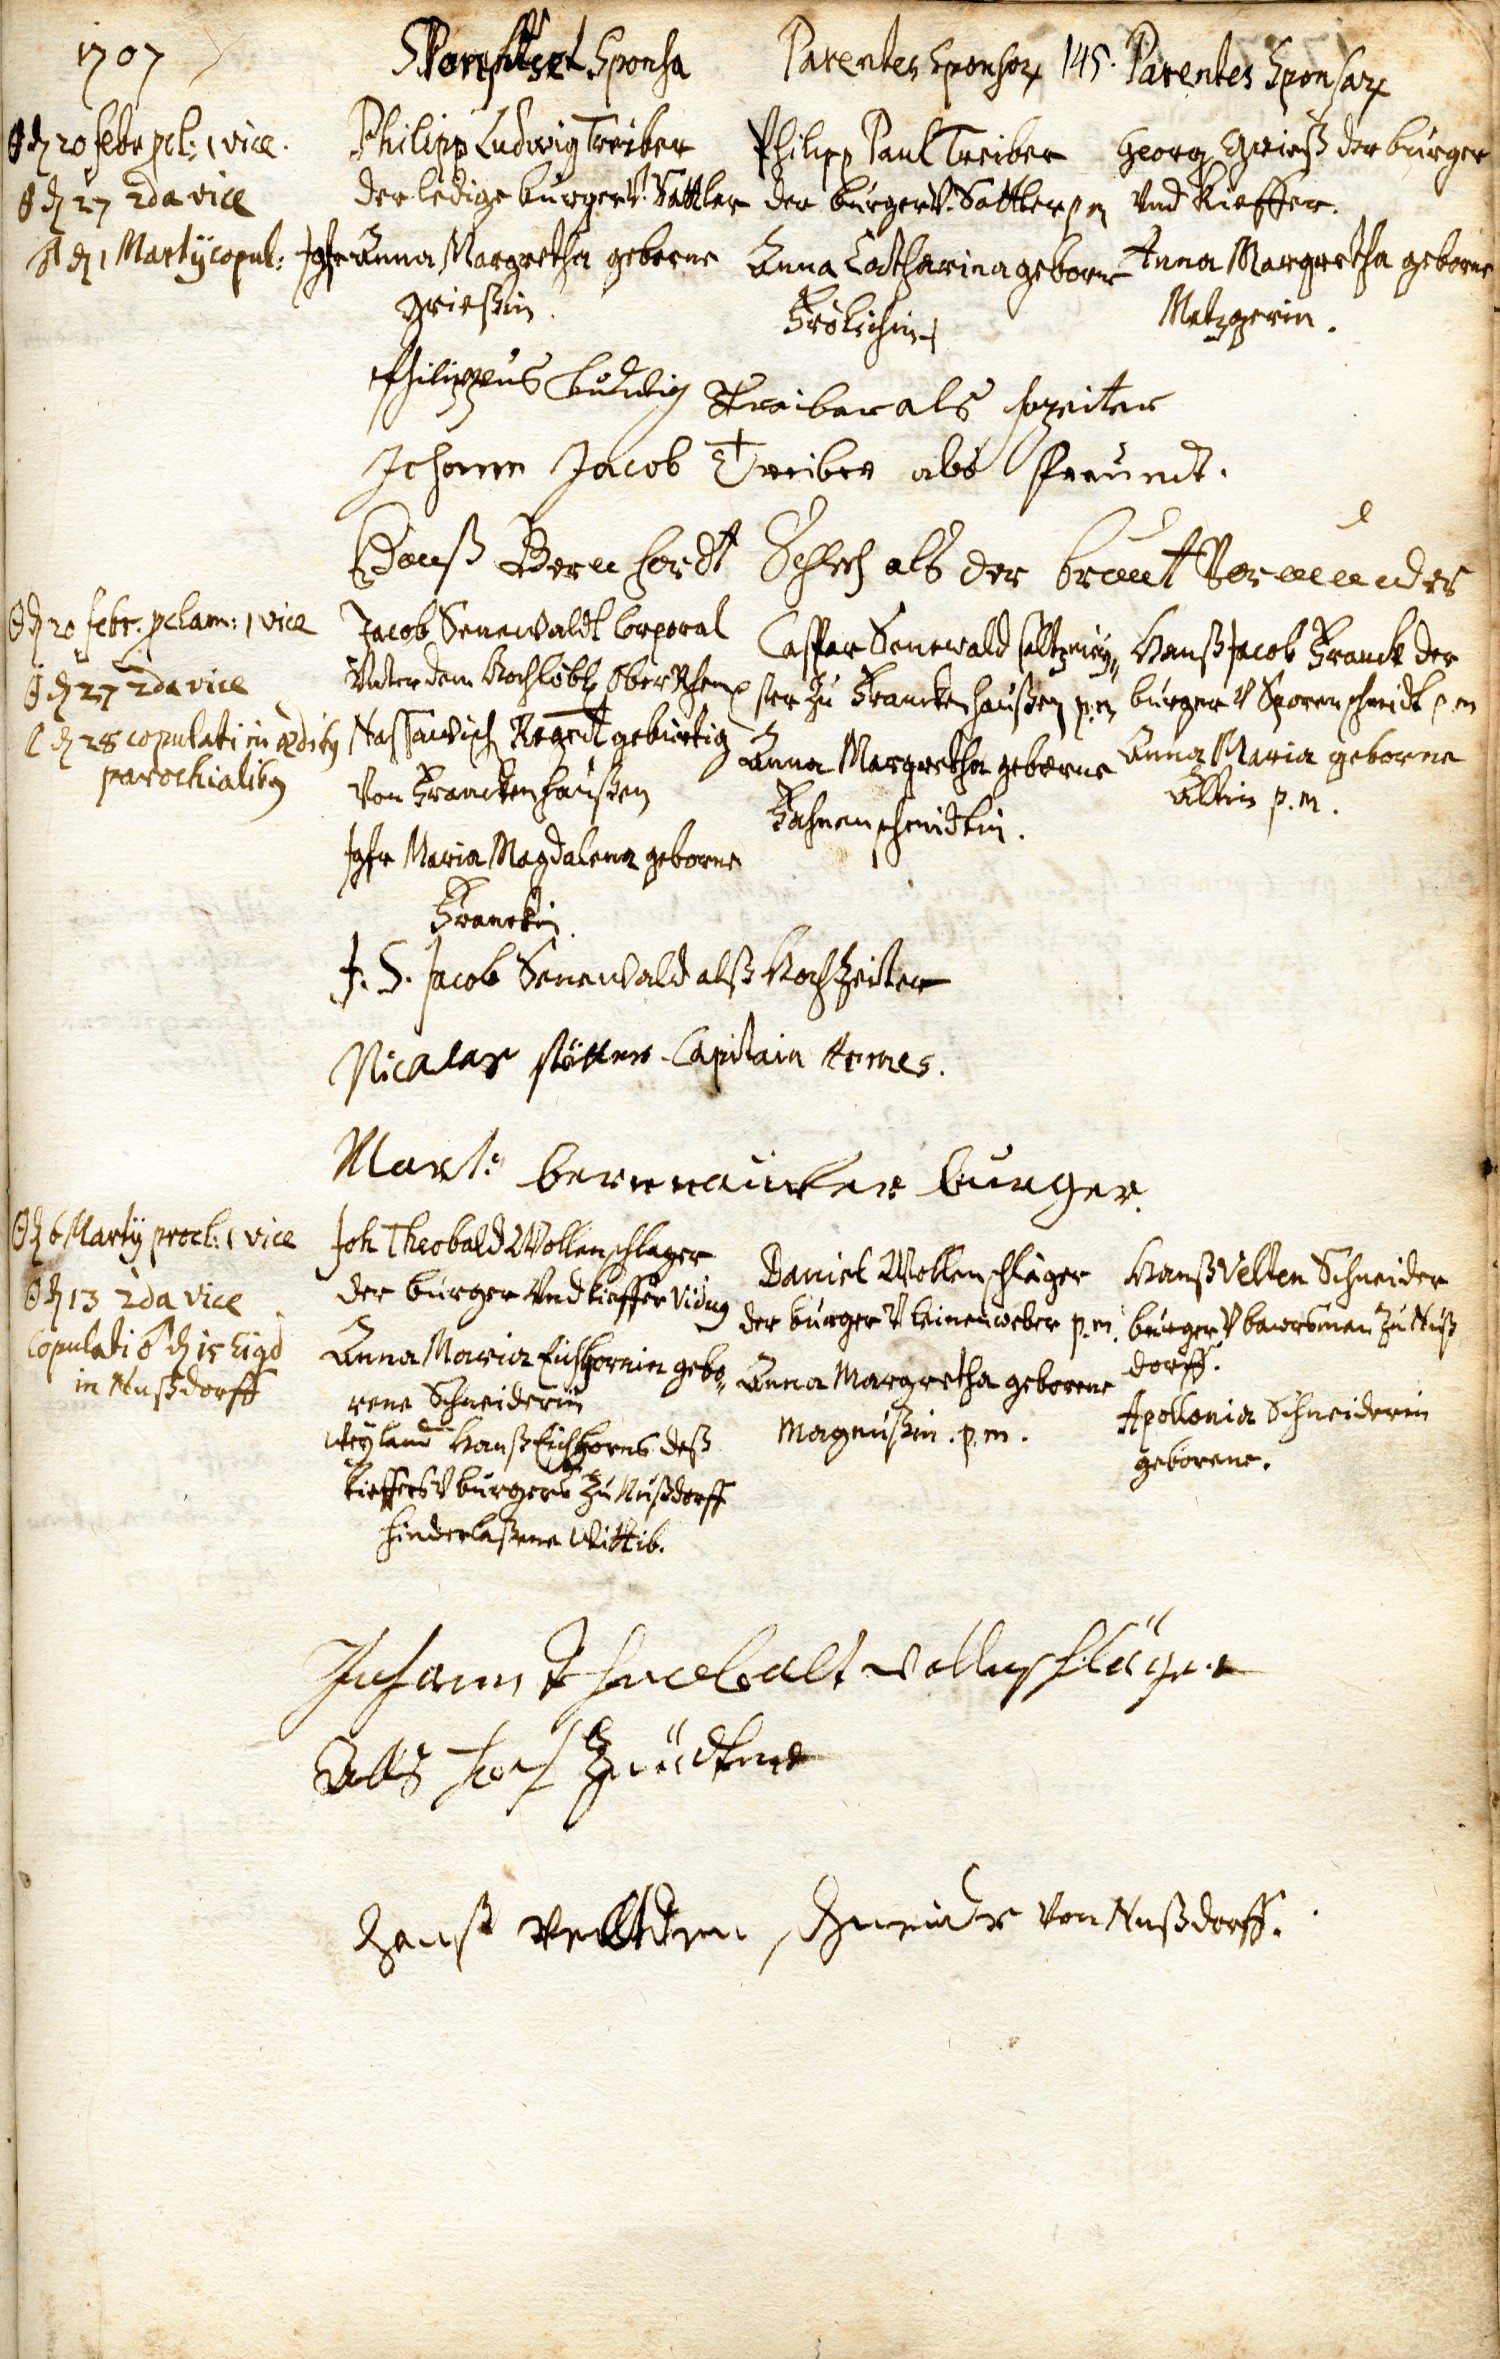 1707
Sponsus et Sponsa
Parentes Sponsor
145.
Parentes Sponsar
20 febr pcl: 1 vice.
27 2da vice
1 Martij copul:
Philipp Ludwig Treiber
der ledige burger V. Sattler
Jgfr Anna Margretha geborne
Grießin.
Philipp Paul Treiber
der burger V. Sattler p m
Anna Catharina geborne
Frölichin
Georg Grieß der burger
Vnd Kieffer.
Anna Margretha geborne
Metzgerin.
Philippus Ludwig Treiber als hozeiter
Johann Jacob Treiber als freundt.
Hanß Bernhardt Schlech als der braut Vormunder
20 febr. pclam: 1 vice
27 2da vice
28 copulati in ædib9
parochialib9
Jacob Senewaldt Corporal
Vnter dem Hochlöbl Ober Rhein
Nassawisch Regmt gebürtig
Von Franckenhaußen
Jgfr Maria Magdalena geborne
Franckin.
Caspar Senewald saltzmey„
ster zu Franckenhaußen p.m
Anna Margretha geborne
Fahnenschmidtin.
Hanß Jacob Franck der
burger V Sporenschmidt p m
Anna Maria geborne
Altin p.m.
J. S. Jacob Senewald alß Hochzeiter
Capitain Armes.
Mart: burger.
6 Martij procl: 1 vice
13 2da vice
Copulati 15
in Nußdorff
Joh Theobald Wollenschlager
der burger Vnd kieffer Vidu9
Anna Maria Eichhornin gebo„
rene Schneiderin
Weyland Hanß Eichhorns deß
kieffers V burgers zu Nußdorff
hinderlaßene Wittib.
Daniel Wollenschläger
der burger V leinenweber p.m.
Anna Margretha geborene
Magnußin. p.m.
Hanß Velten Schneider
burger V bawrsman zu Nuß
dorff.
Apollonia Schneiderin
geborene.
Johann Theebalt Wollenschläger
Alls
Hanß Vellten Schneider Von Nußdorff.